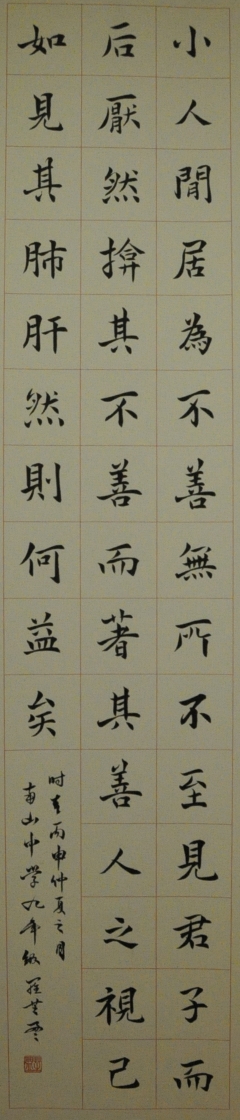 小人閒居為不善無所不至見君子而
后厭然揜其不善而著其善人之視己
如見其肺肝然則何益矣
时在丙申仲夏之月
南山中学九年级